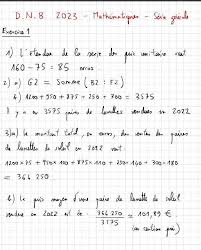 D.N.B 2023 - Mathématiques - Série générale
Exercice 1
1) L'étendue de la série des prix unitaires vaut
160 - 75 = 85 euros
2) a) G2 = SOMME (B2 : F2)
b) 1200 + 950 + 875 + 250 + 300 = 3575
Il y a eu 3575 paires de lunettes vendues en 2022
3) a) Le montant total, en euros, des ventes des paires
de lunettes de soleil en 2022 vaut
1200 × 75 + 950 × 100 + 875 × 110 + 250 × 140 + 300 × 160
= 364 250
b) Le prix moyen d'une paire de lunettes de soleil
vendue en 2022 est de 364 250 / 3575 ≈ 101,89 €
(au centime près)